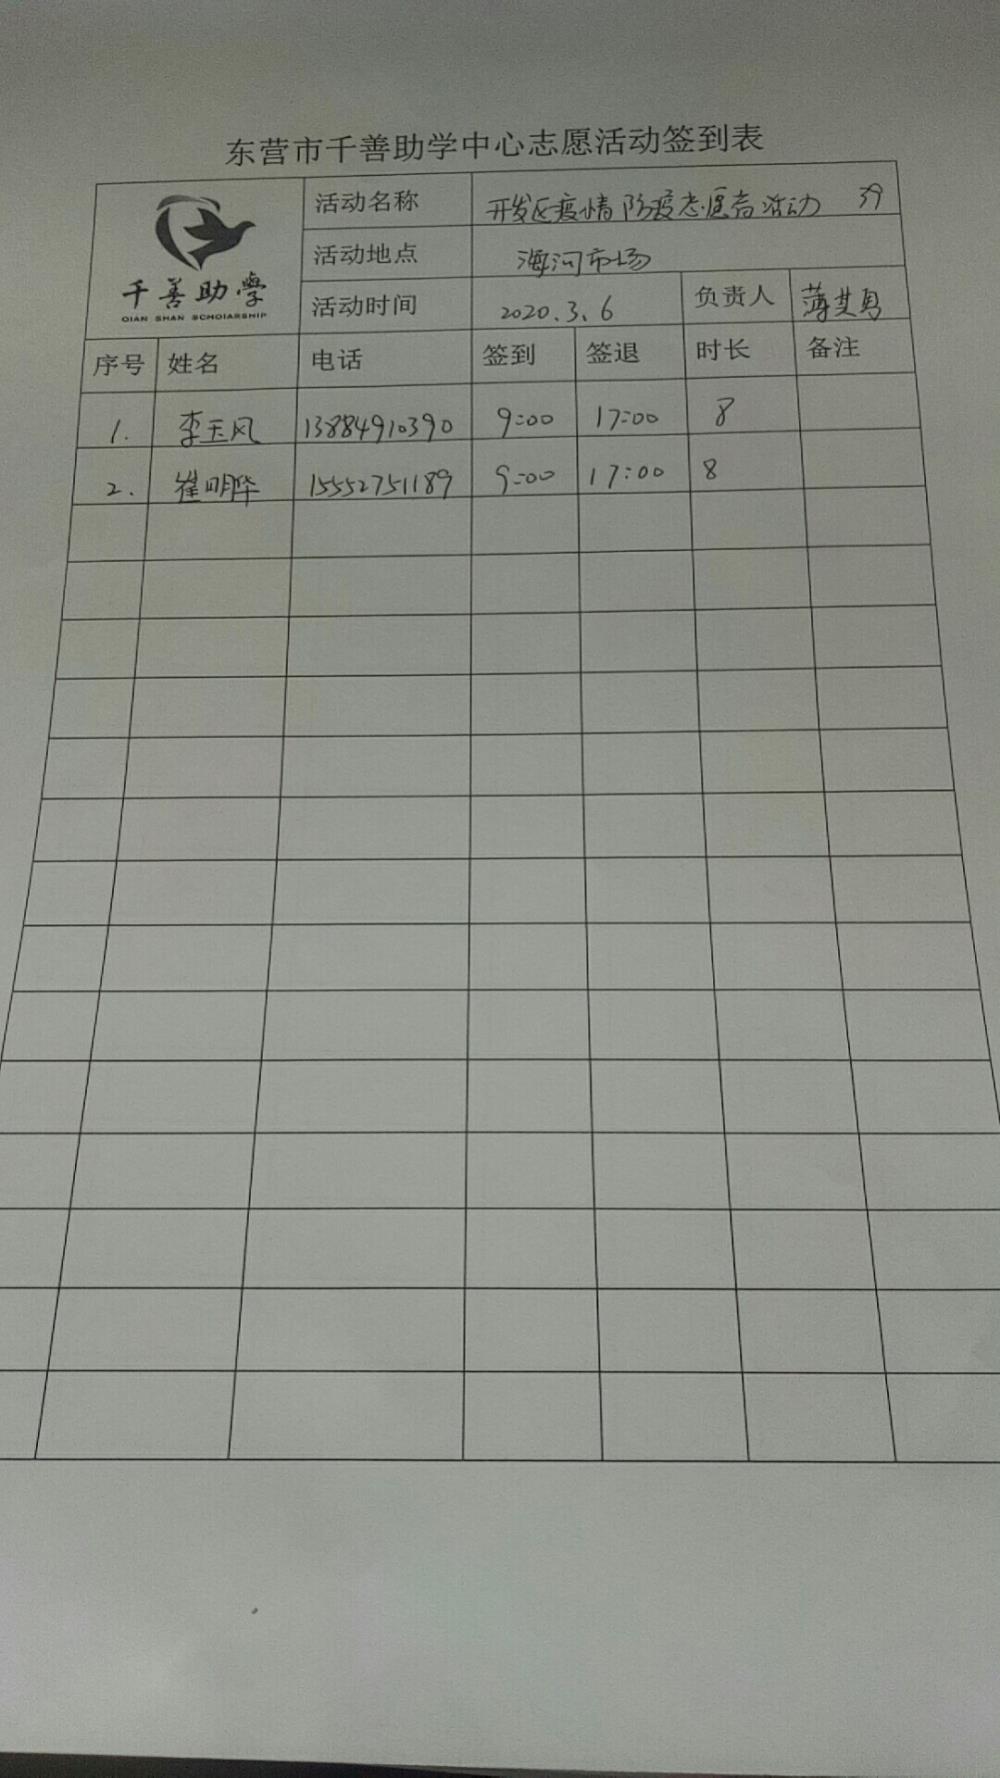 东营市千善助学中心志愿活动签到表
千善助學
QIAN SHAN SCHOlARSHIP
活动名称 开发区疫情防疫志愿者活动 39
活动地点 海河市场
活动时间 2020.3.6 负责人 薄其勇
序号 姓名 电话 签到 签退 时长 备注
1. 李玉风 13884910390 9:00 17:00 8
2. 崔明华 15552751189 9:00 17:00 8